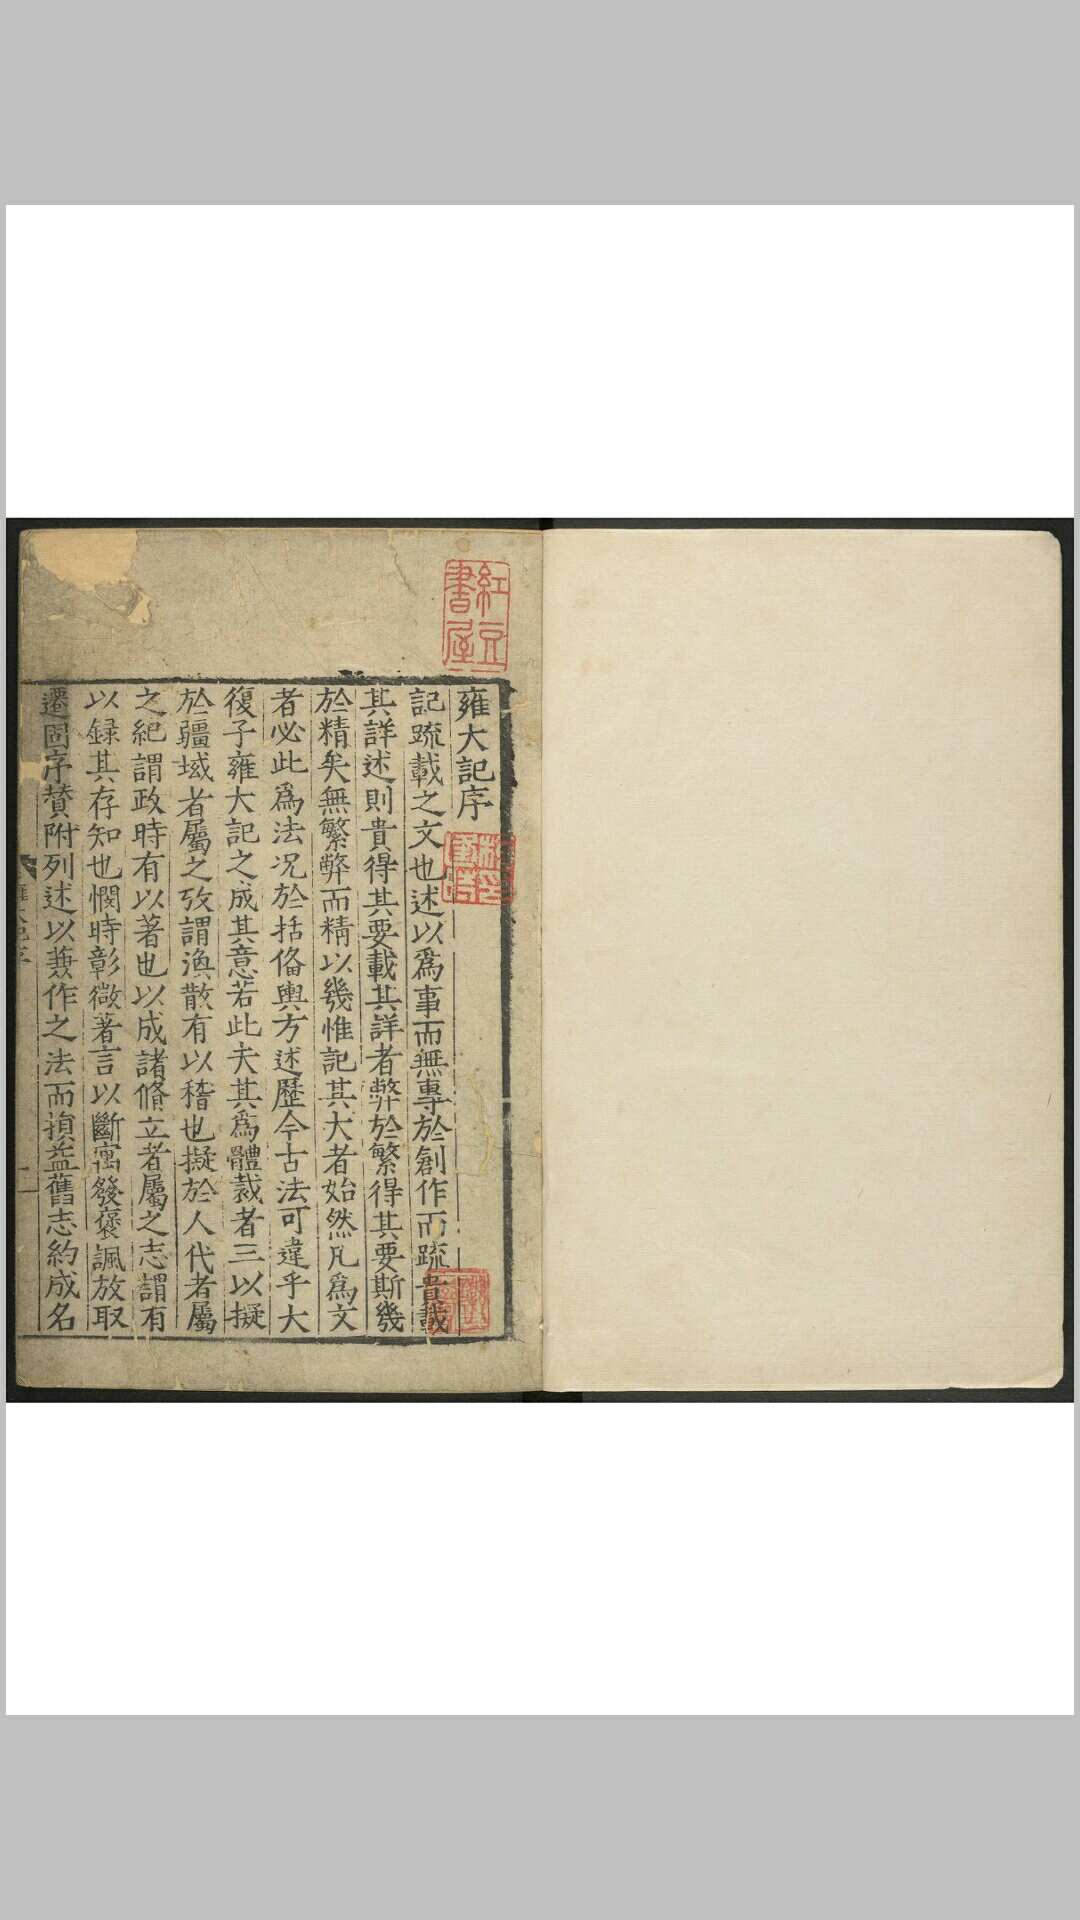 雍大記序
記疏載之文也述以爲事而無專於創作而疏貴載
其詳述則貴得其要載其詳者弊於繁得其要斯幾
於精矣無繁弊而精以幾惟記其大者始然凡爲文
者必此爲法况於括俻輿方述歷今古法可違乎大
復子雍大記之成其意若此夫其爲體裁者三以擬
於疆域者屬之攷謂渙散有以稽也擬於人代者屬
之紀謂政時有以著也以成諸脩立者屬之志謂有
以録其存知也憫時彰微著言以斷寓發褒諷放取
遷固序賛附列述以兼作之法而損益舊志約成名
紅豆書屋